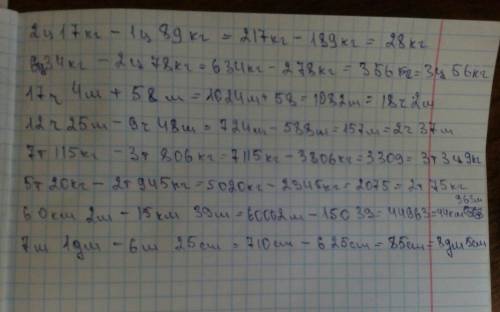 2ц 17кг - 1ц 89кг = 217кг - 189кг = 28кг
6ц34кг - 2ц 78кг = 634кг - 278кг = 356кг = 3ц 56кг
17ч 4м + 58м = 1024м + 58 = 1082м = 18ч 2м
12ч 25м - 9ч 48м = 724м - 588м = 157м = 2ч 37м
7т 115кг - 3т 806кг = 7115кг - 3806кг = 3309 = 3т 309кг
5т 20кг - 2т 945кг = 5020кг - 2945кг = 2075 = 2т 75кг
60км 2м - 15км 39м = 60002м - 15039 = 44963 = 44км 963м
7м 1дм - 6м 25см = 710см - 625см = 85см = 8дм 5см